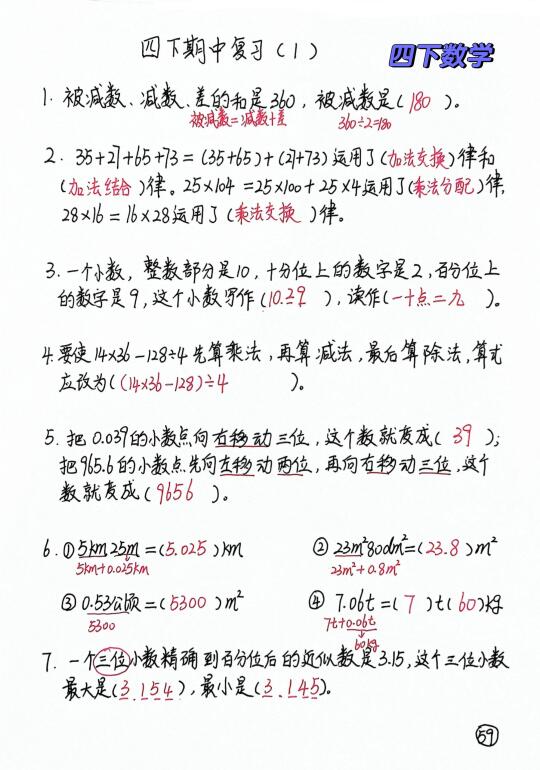 四下期中复习(1)
四下数学
1. 被减数、减数、差的和是360,被减数是(180)。
被减数=减数+差 360÷2=180
2. 35+27+65+73=(35+65)+(27+73)运用了(加法交换)律和
(加法结合)律。25×104=25×100+25×4运用了(乘法分配)律,
28×16=16×28运用了(乘法交换)律。
3. 一个小数,整数部分是10,十分位上的数字是2,百分位上
的数字是9,这个小数写作(10.29),读作(一十点二九)。
4. 要使14×36-128÷4先算乘法,再算减法,最后算除法,算式
应改为((14×36-128)÷4)。
5. 把0.039的小数点向右移动三位,这个数就变成(39);
把965.6的小数点先向左移动两位,再向右移动三位,这个
数就变成(9656)。
6. ①5km25m=(5.025)km ②23m²80dm²=(23.8)m²
5km+0.025km 23m²+0.8m²
③0.53公顷=(5300)m² ④7.06t=(7)t(60)kg
5300 7t+0.06t
60kg
7. 一个三位小数精确到百分位后的近似数是3.15,这个三位小数
最大是(3.154),最小是(3.145)。
59